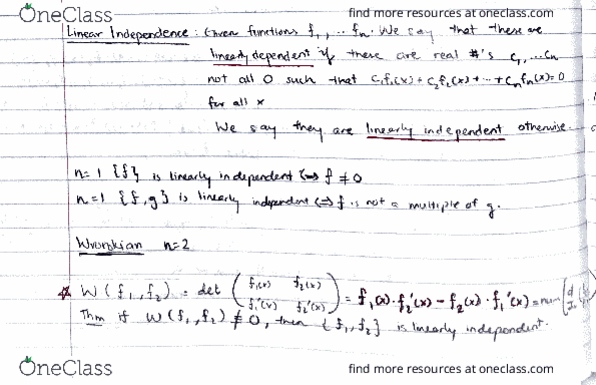 OneClass
find more resources at oneclass.com
Linear Independence : Given functions f₁, .. fₙ. We say that there are
linearly dependent if there are real #'s c₁, ... cₙ
not all 0 such that c₁f₁(x) + c₂f₂(x) + ... + cₙfₙ(x) = 0
for all x
We say they are linearly independent otherwise.
n=1 {f} is linearly independent ⟺ f ≠ 0
n=1 {f, g} is linearly independent ⟺ f is not a multiple of g.
Wronskian n=2
W(f₁, f₂) = det ( f₁(x) f₂(x) ) = f₁(x)·f₂'(x) - f₂(x)·f₁'(x) = num
( f₁'(x) f₂'(x) )
Thm if W(f₁, f₂) ≠ 0, then {f₁, f₂} is linearly independent.
OneClass
find more resources at oneclass.com